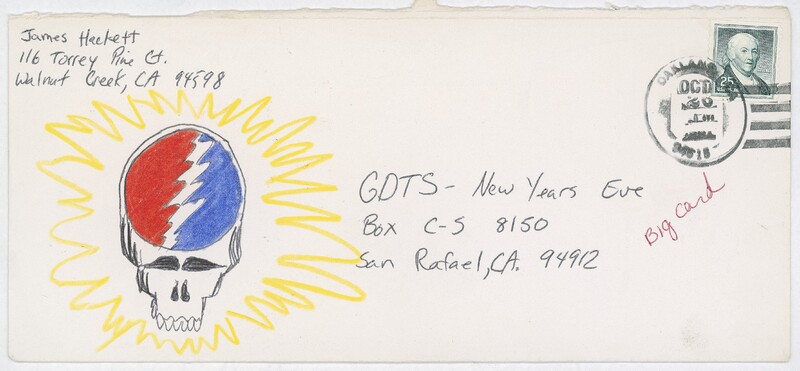 James Hackett
116 Torrey Pine Ct.
Walnut Creek, CA 94598
25
OAKLAND
OCT
20
GDTS - New Years Eve
Box C-S 8150
San Rafael, CA. 94912
Big card